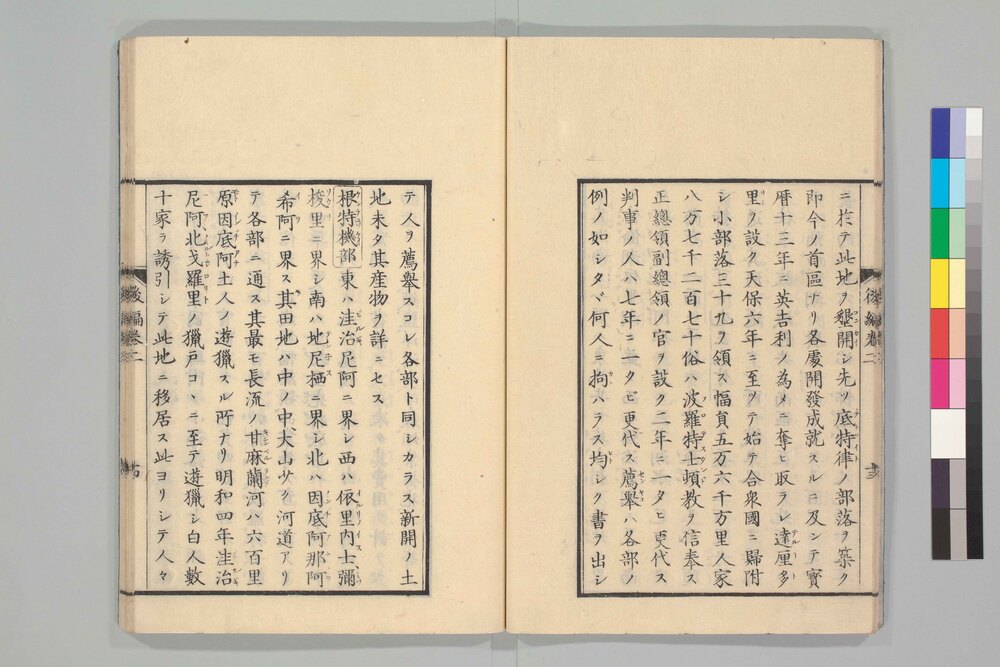 ニ於テ此地ヲ墾開シ先ツ底特律ノ部落ヲ築ク
即今ノ首區ナリ各處開發成就スルニ及ンテ寳
暦十三年ニ英吉利ノ為メニ奪ヒ取ラレ達厘多
里ヲ設ク天保六年ニ至ツテ始テ合衆國ニ歸附
シ小部落三十九ヲ領ス幅貟五万六千方里人家
八万七千二百七十俗ハ波羅特士頓教ヲ信奉ス
正總領副總領ノ官ヲ設ク二年ニ一タヒ更代ス
判事ノ人ハ七年ニ一タヒ更代ス薦舉ハ各部ノ
例ノ如シタヾ何人ニ拘ハラス均シク書ヲ出シ
後編卷二
テ人ヲ薦舉スコレ各部ト同シカラス新開ノ土
地未タ其産物ヲ詳ニセス
根特機部東ハ洼治尼阿ニ界シ西ハ依里内士彌
梭里ニ界シ南ハ地尼栖ニ界シ北ハ因底阿那阿
希阿ニ界ス其田地ハ中ノ中大山少ク河道アリ
テ各部ニ通ス其最モ長流ノ甘麻蘭河ハ六百里
原因底阿土人ノ遊獵スル所ナリ明和四年洼治
尼阿北戈羅里ノ獵戸コヽニ至テ遊獵シ白人數
十家ヲ誘引シテ此地ニ移居ス此ヨリシテ人々
後編卷二